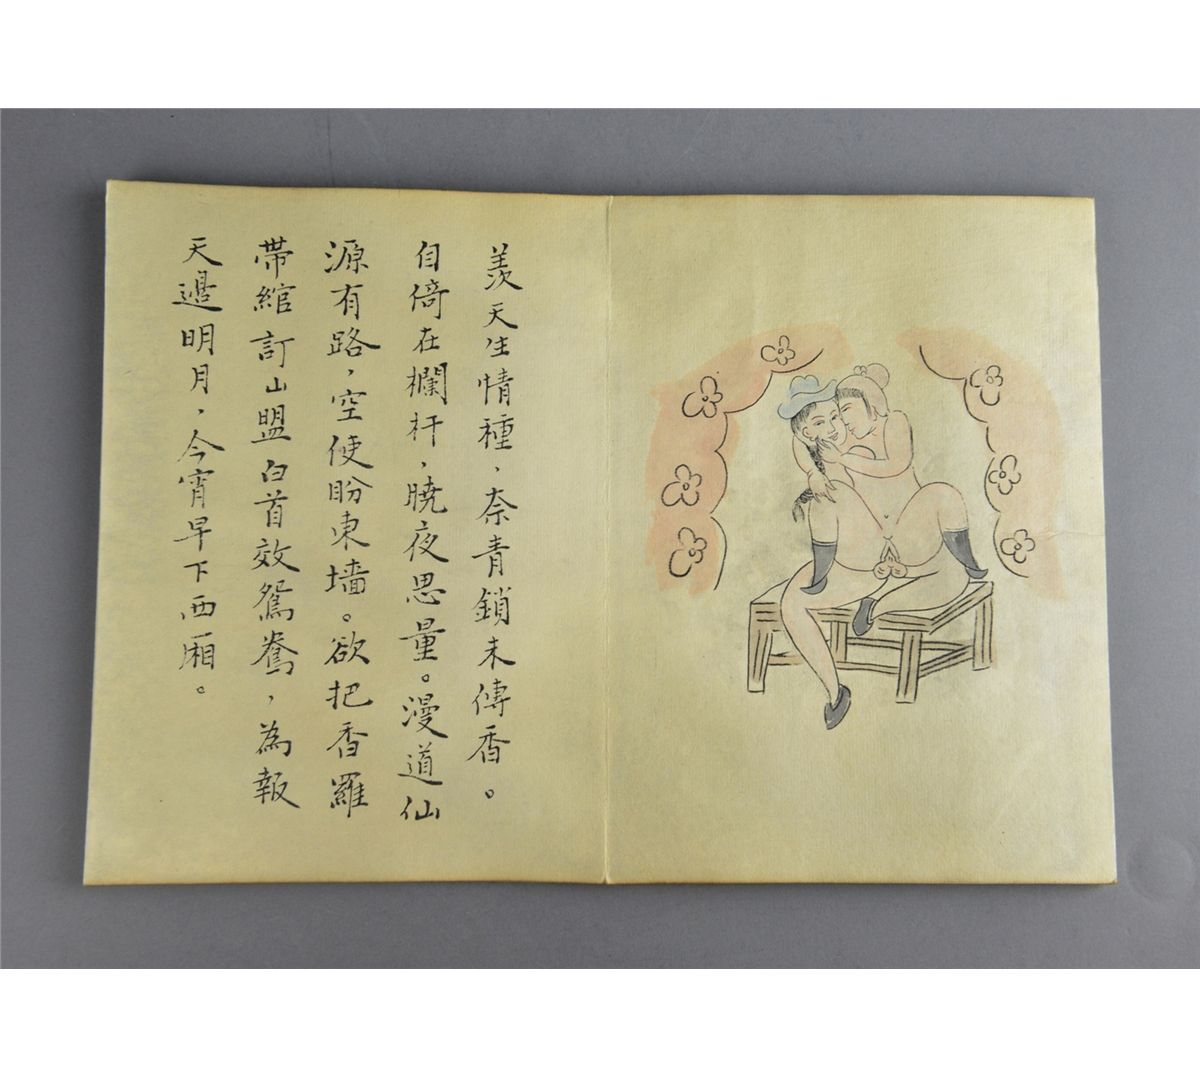 羨天生情種，奈青鎖未傳香。
自倚在欄杆，曉夜思量。漫道仙
源有路，空使盼東墻。欲把香羅
帶綰訂山盟白首效鴛鴦，為報
天邊明月，今宵早下西廂。